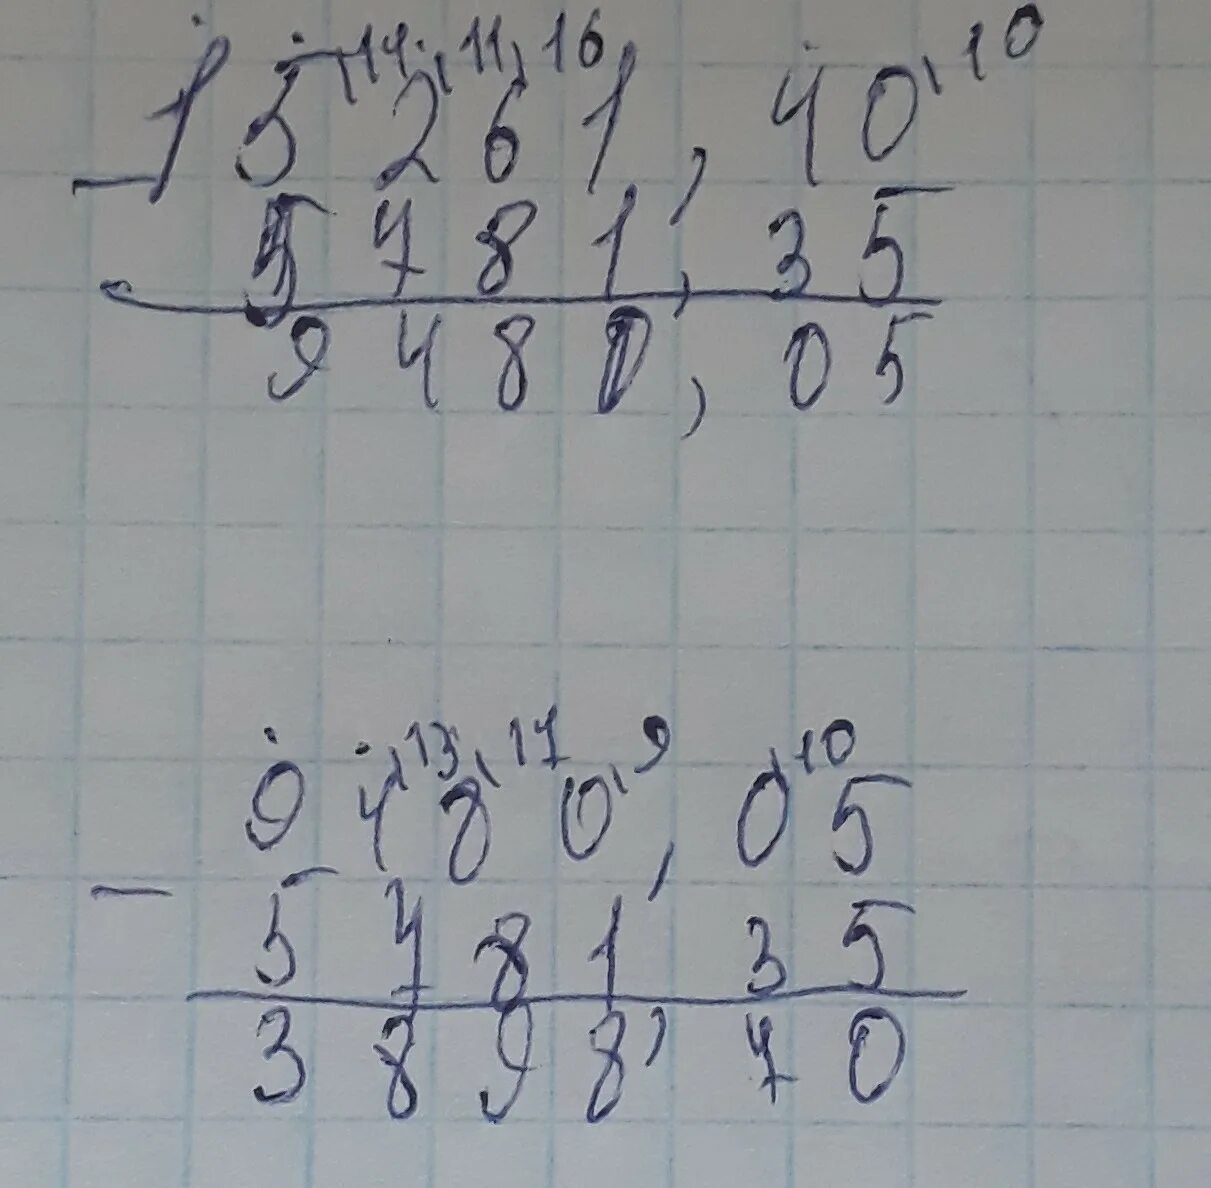 14 11 16 10
15261,40
− 5781,35
9480,05
13 17 9 10
9480,05
− 5781,35
3898,70